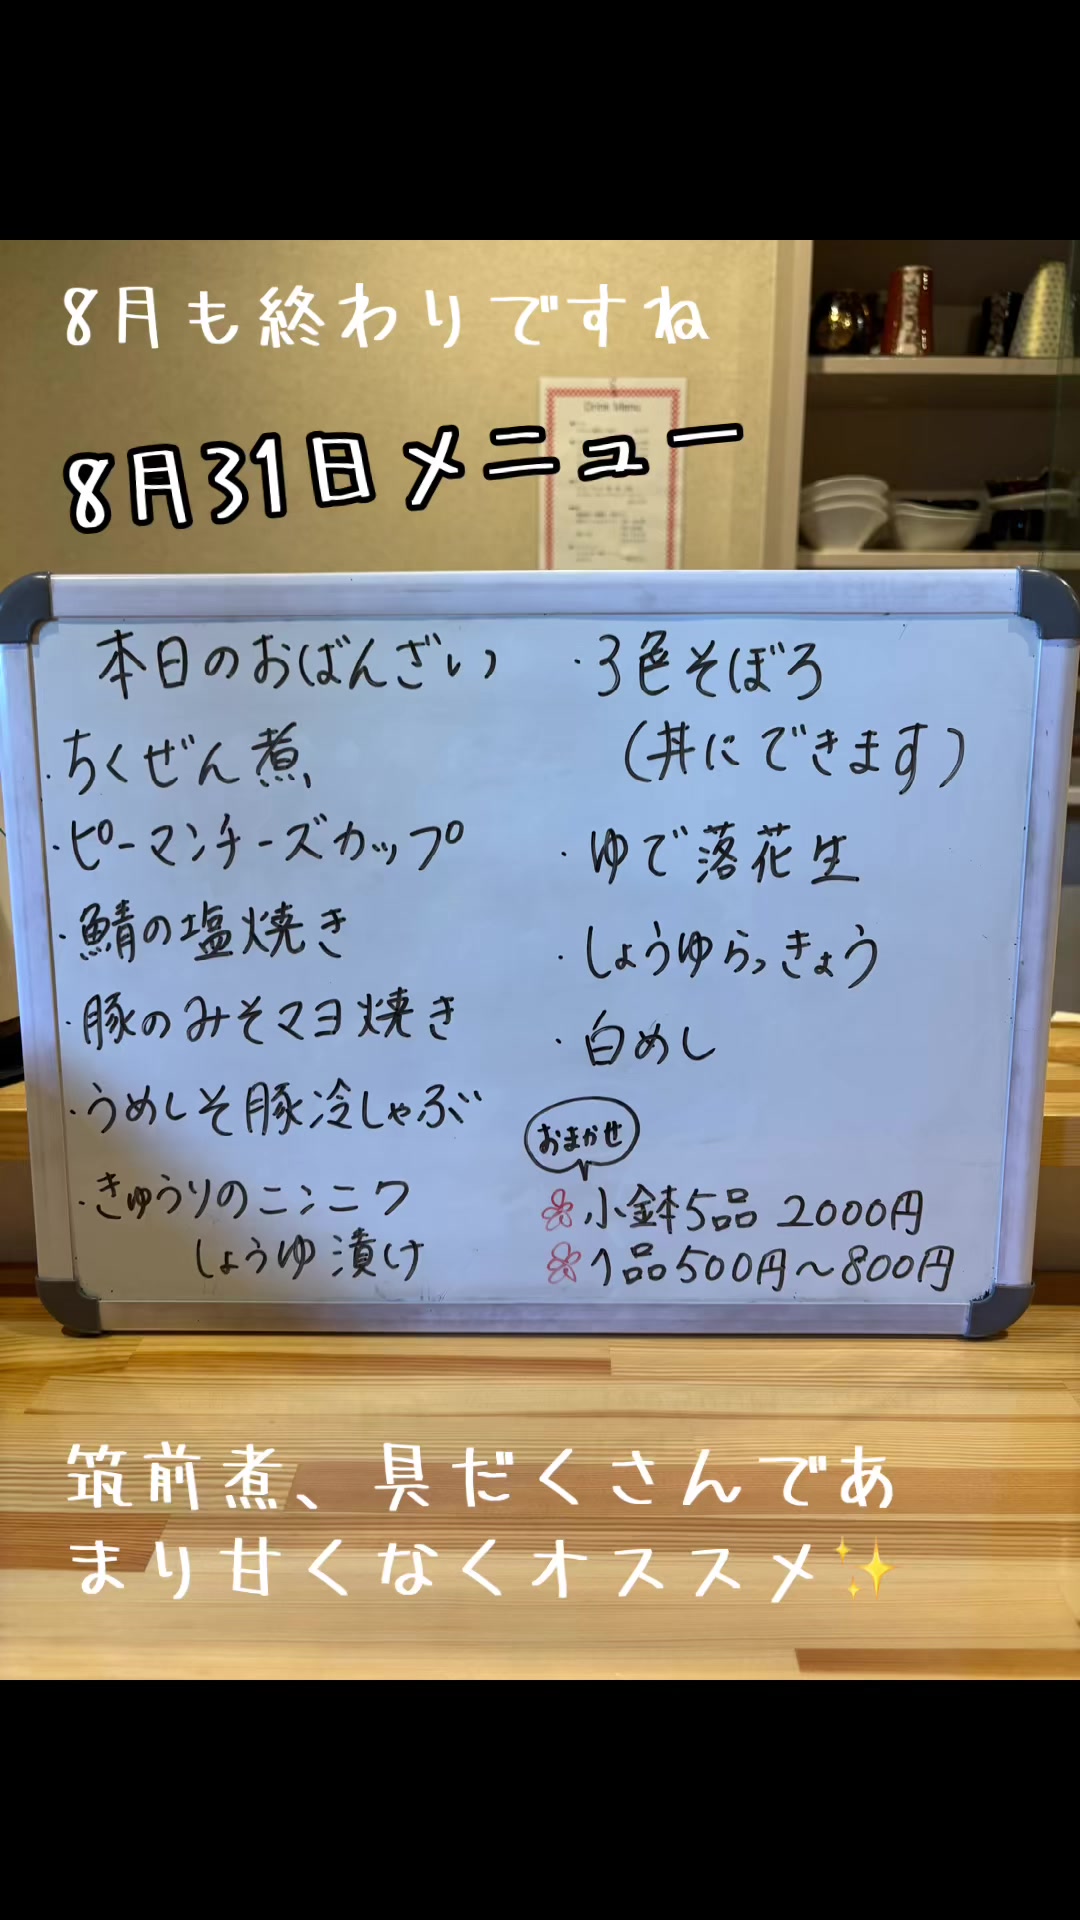 8月も終わりですね
8月31日メニュー
Drink Menu
本日のおばんざい
・ちくぜん煮
・ピーマンチーズカップ
・鯖の塩焼き
・豚のみそマヨ焼き
・うめしそ豚冷しゃぶ
・きゅうりのニンニク
しょうゆ漬け
・3色そぼろ
(丼にできます)
・ゆで落花生
・しょうゆらっきょう
・白めし
おまかせ
小鉢5品 2000円
1品500円〜800円
筑前煮、具だくさんであ
まり甘くなくオススメ✨